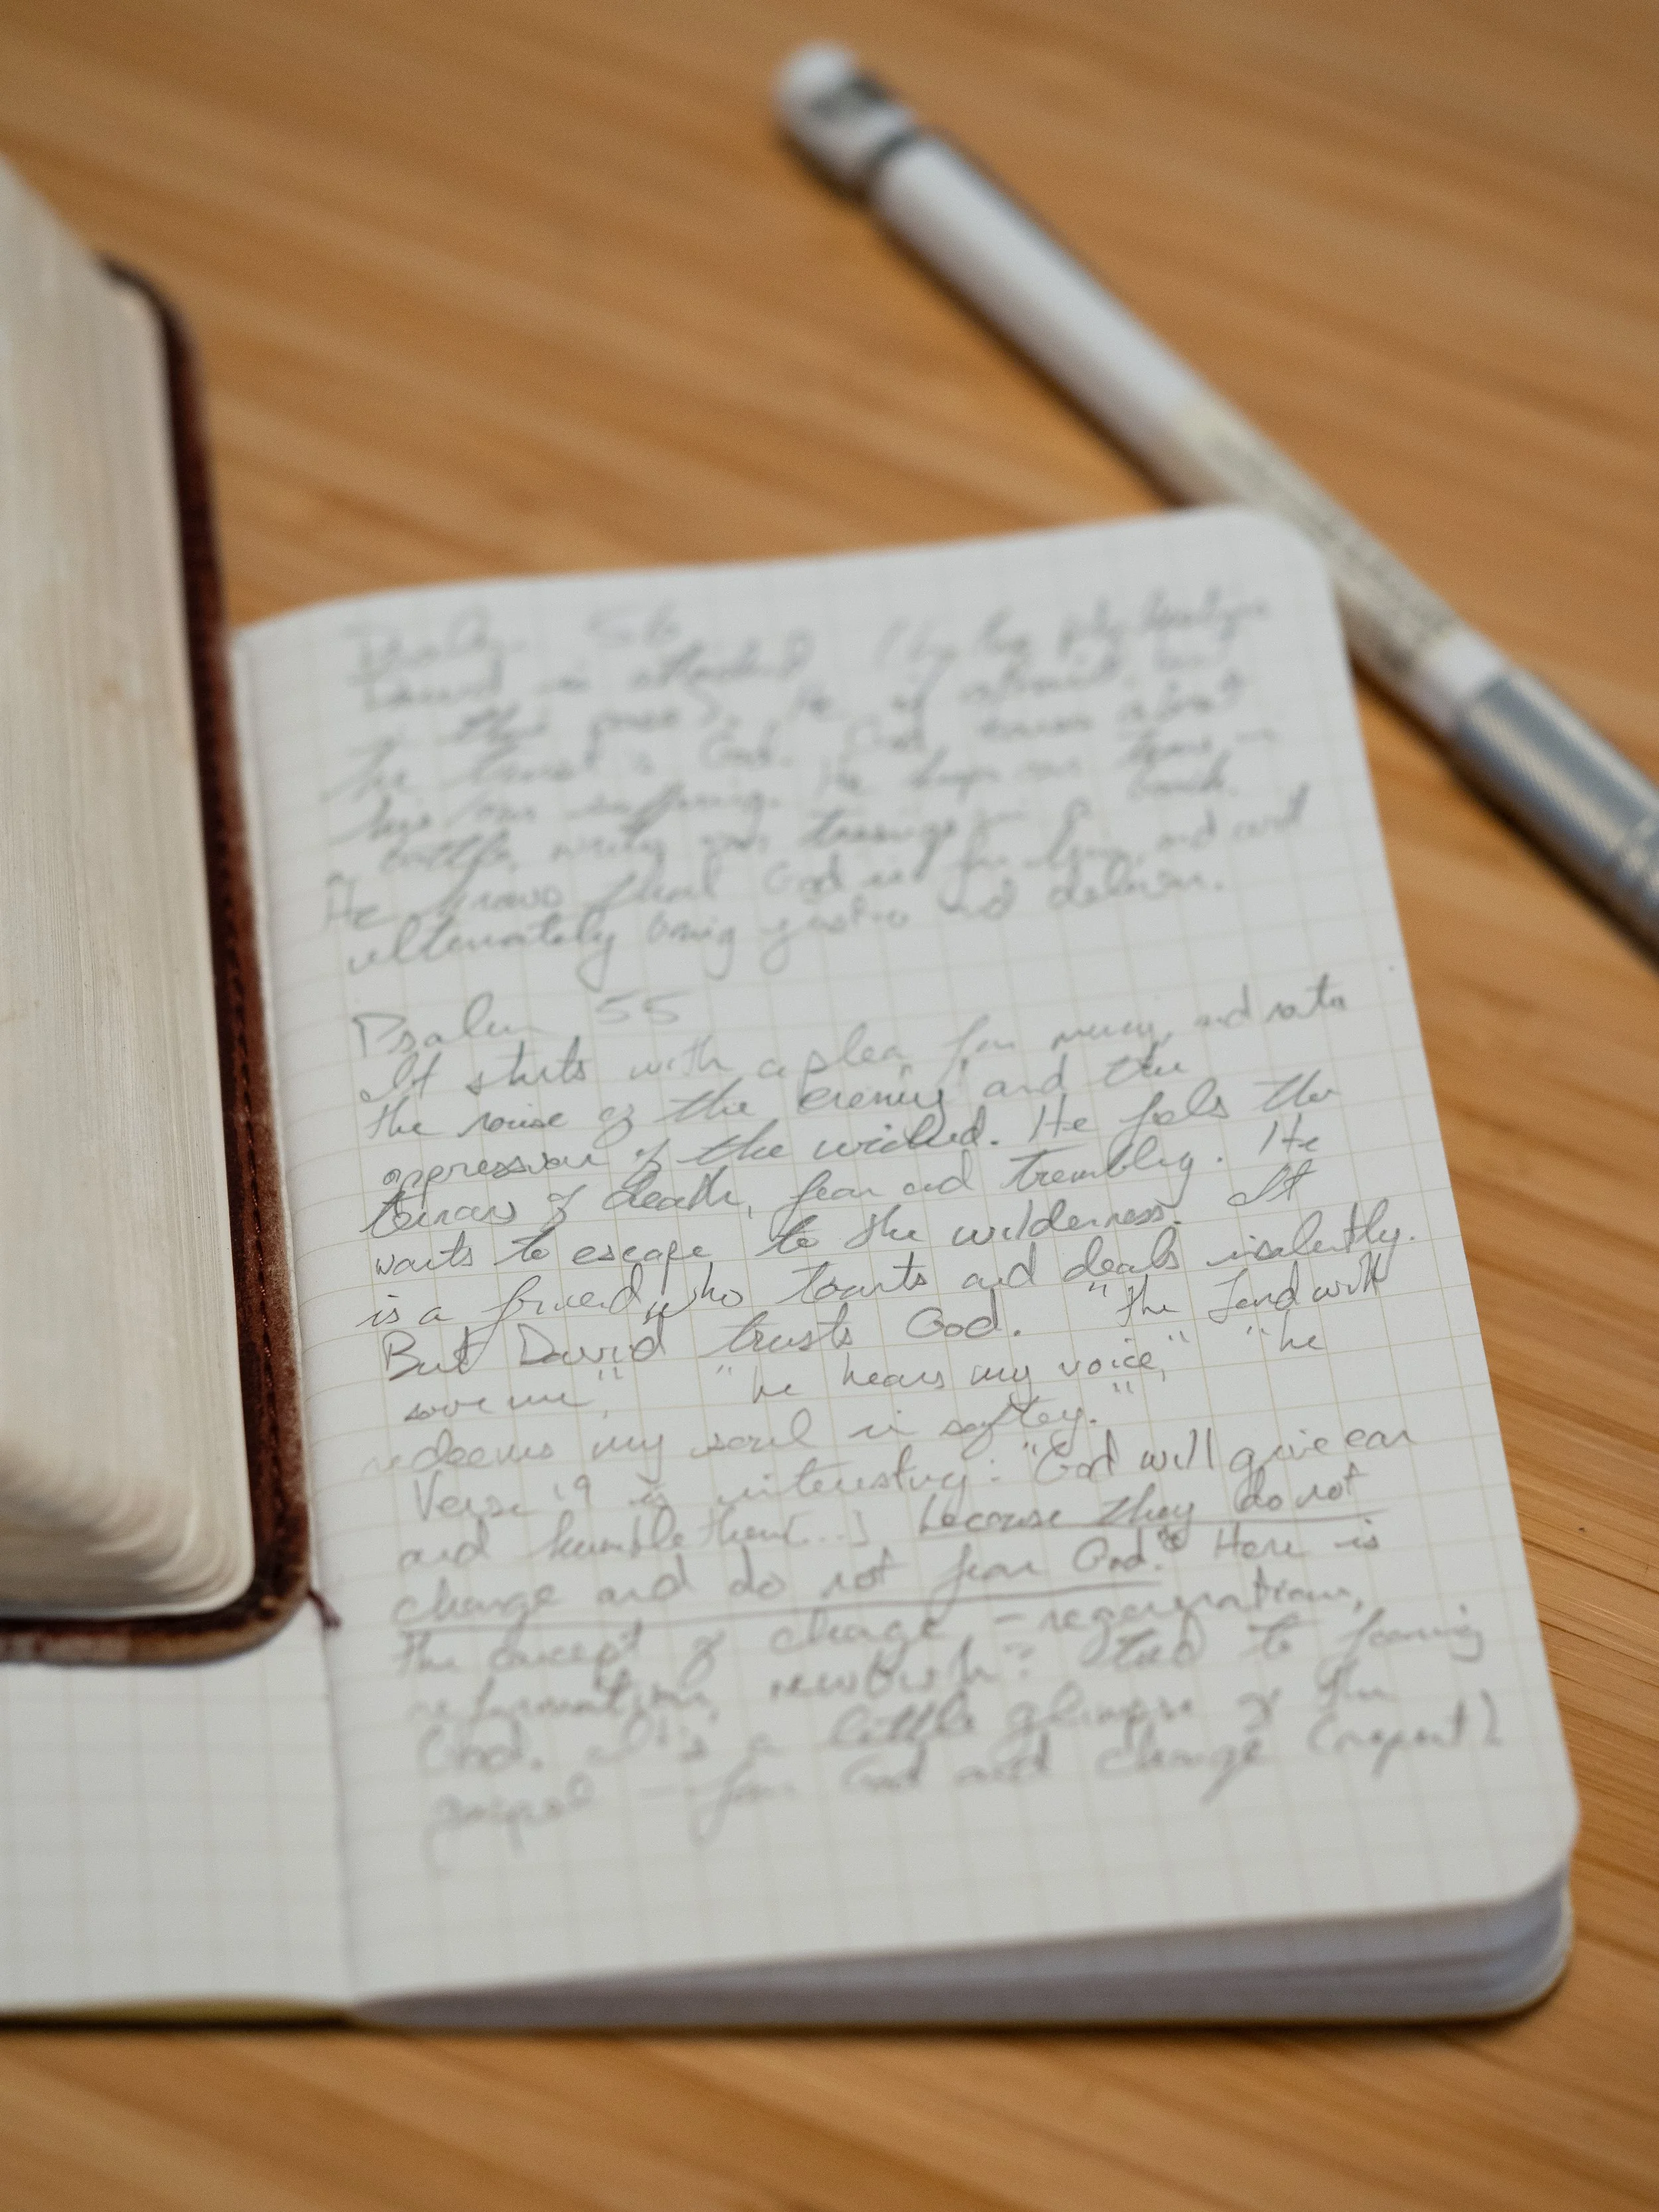 Psalm 56
David is attacked (by the philistines
in this psalm). He is afraid, but
he trusts God. God knows about
his/our suffering. He keeps our tears in
a bottle, writing our in a book.
He knows that God is for him, and will
ultimately bring justice and deliver.
Psalm 55
It starts with a plea for mercy, and notes
the noise of the enemy and the
oppression of the wicked. He feels the
terrors of death, fear and trembling. He
wants to escape to the wilderness. It
is a friend who taunts and deals insolently.
But David trusts God. "the Lord will
save me", "he hears my voice," "he
redeems my soul in saftey."
Verse 19 is interesting: "God will give ear
and humble them[...] because they do not
change and do not fear God." Here is
the concept of change - regeneration,
reformation, newbirth? tied to fearing
God. It's a little glimpse of the
gospel - fear God and change (repent)